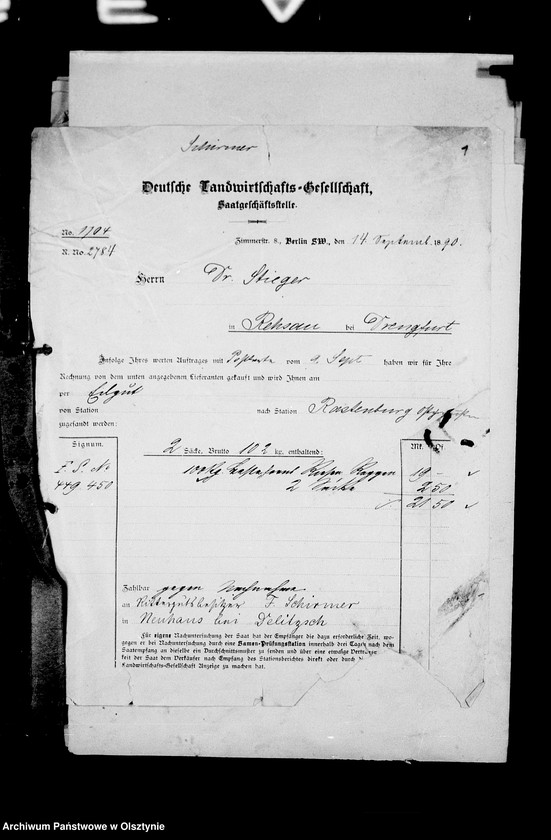 Schirmer
1
Deutsche Landwirtschafts-Gesellschaft,
Saatgeschäftsstelle.
No. 1704
R. No. 2784
Zimmerstr. 8, Berlin SW., den 14 Septemb. 1890.
Herrn Dr. Stieger
in Rehsau bei Drengfurt
Infolge Ihres werten Auftrages mit Postkarte vom 9. Sept. haben wir für Ihre
Rechnung von dem unten angegebenen Lieferanten gekauft und wird Ihnen am
per Eilgut
von Station nach Station Rastenburg
zugesandt werden:
Signum. 2 Säcke. Brutto 102 kg. enthaltend: Mk. Pf.
F. S. No 100 kg Roggen 19 -
449 450 2 Säcke 2 50
21 50
Zahlbar gegen Nachnahme
an Rittergutsbesitzer F. Schirmer
in Neuhaus bei Delitzsch
Für eigene Nachuntersuchung der Saat hat der Empfänger die dazu erforderliche Zeit, wo-
gegen er bei Nachuntersuchung durch eine Samen-Prüfungsstation innerhalb drei Tagen nach dem
Saatempfang an dieselbe ein Durchschnittsmuster zu senden und über eine etwaige
der Saat dem Verkäufer nach Empfang des Stationsberichtes direkt oder durch
Landwirtschafts-Gesellschaft Anzeige zu machen hat.
Archiwum Państwowe w Olsztynie